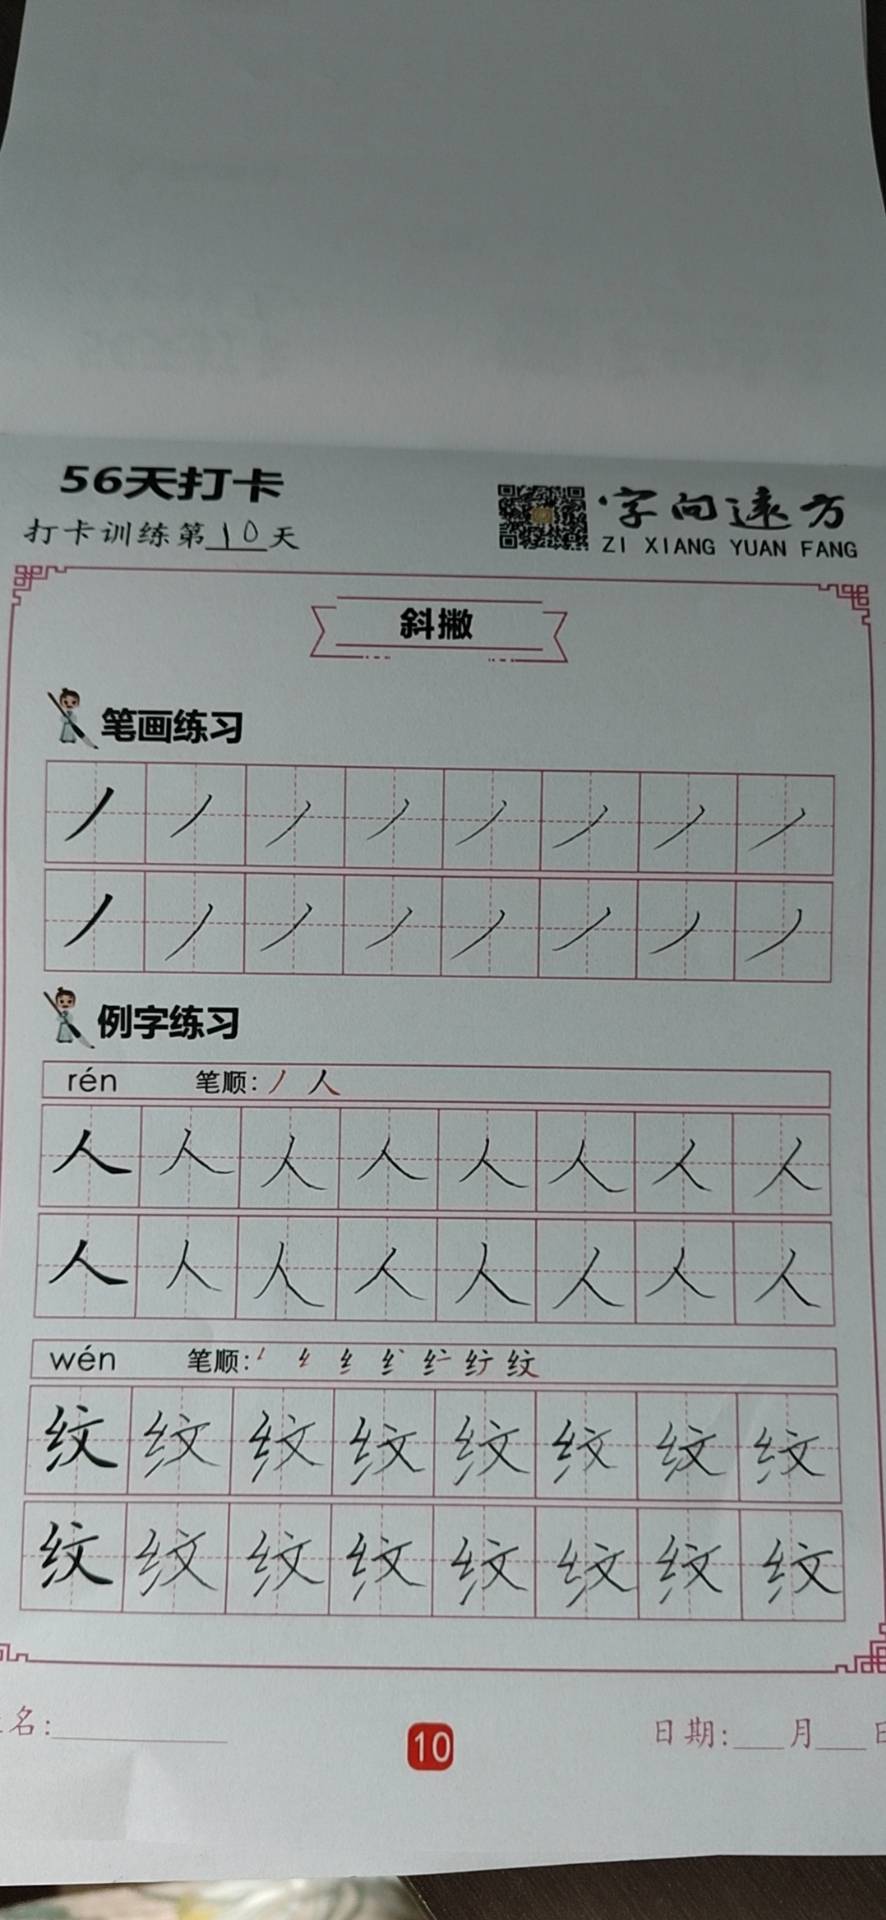 56天打卡
打卡训练第10天
字向远方
ZI XIANG YUAN FANG
斜撇
笔画练习
丿 丿 丿 丿 丿 丿 丿 丿
丿 丿 丿 丿 丿 丿 丿 丿
例字练习
rén 笔顺:丿 人
人 人 人 人 人 人 人 人
人 人 人 人 人 人 人 人
wén 笔顺: 纹
纹 纹 纹 纹 纹 纹 纹 纹
纹 纹 纹 纹 纹 纹 纹 纹
名:
10
日期: 月 日